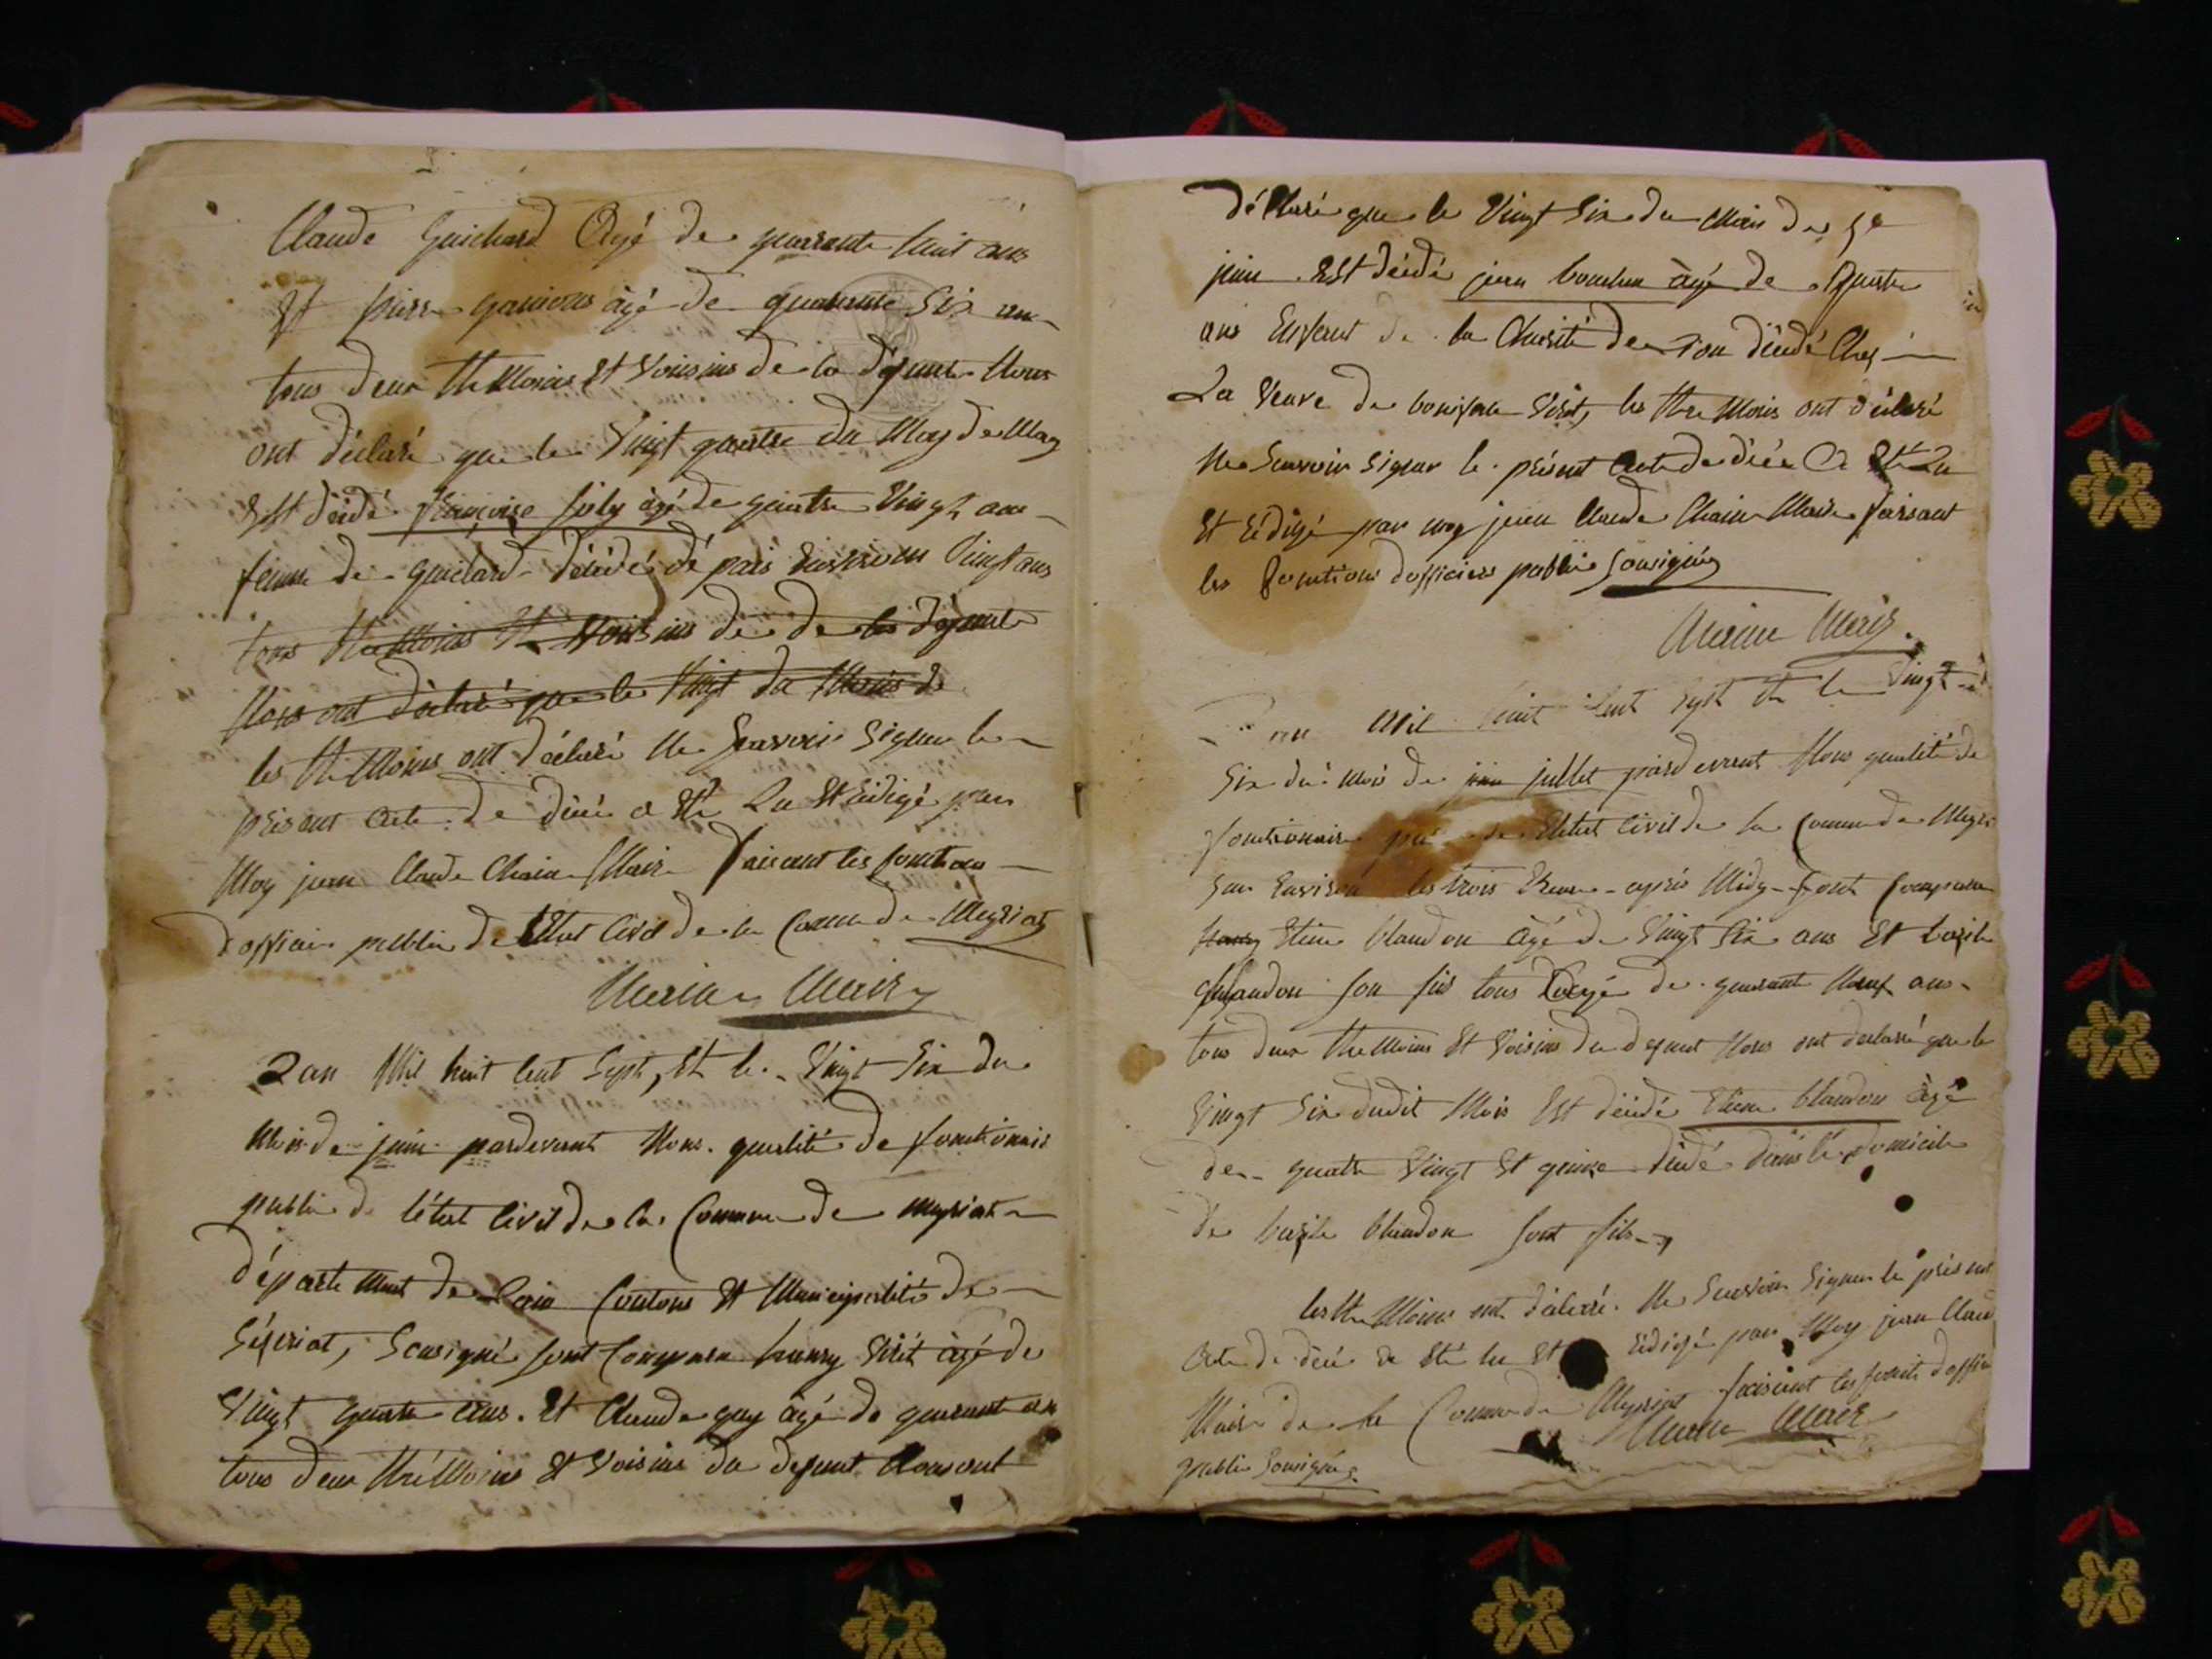 Claude Guichard Agé de quarante huit ans
Et pierre âgé de quarante Six an
tous deux thémoins Et Voisins de la défunte Nous
ont déclaré que le Vingt quatre du Moy de May
Est décédé françoise joly âgé de quatre Vingt ans
femme de guichard décédé dé pais Environs Vingt ans
tous thémoins Et Voisins de de la défunte
Nous ont déclaré que le Vingt du Mois de
les thémoins ont déclaré Ne Scavoir Signer le
présent acte de décé a Eté Lu Et Rédigé par
Moy jean Claude Maire faisant les fonctions
dofficier public de Etat Civil de la Comune de Meyriat
Maire
Lan Mil huit Cent Sept, Et le Vingt Six du
Mois de juin pardevant Nous qualité de fonctionair
public de létat Civil de la Commune de meyriat
département de Lain Cantons Et Municipalité de
Séyseriat, Sousigné sont Comparu hanry Virét âgé de
Vingt quatre ans. Et Claude guy âgé de quarant an
tous deux thémoins Et Voisins du defunt Nous ont
déclaré que le Vingt Six du Mois de
juin Est décédé jean âgé de quatre
ans Enfant de la Charité de décédé Chez
La Veuve de boniface Virét, les thémoins ont déclaré
Ne Scavoir Signer le présent acte de décé a Eté Lu
Et rédigé par moy jean Claude Maire faisant
les fonctions dofficier public Sousigné
Maire
an Mil huit Cent Sept Et le Vingt
Six du mois de juin jullet pardevant Nous qualité de
fonctionaire de Létat Civil de la Commune de
Sur Environ les trois heure après Midy sont Comparu
hanry Etiene blandon âgé de Vingt Six ans Et bazile
blandon son fils tous âgé de quarante Neuf ans
tous deux thémoins Et Voisins du defunt Nous ont declaré que le
Vingt Six dudit Mois Est décédé Etiene blandon âgé
de quatre Vingt Et quinze décédé dans lé domicile
de bazile blandon sont fils
les thémoins ont déclaré Ne Scavoir Signer le présent
acte de décé a Eté lu Et Rédigé par Moy jean Claud
Maire de la Commune de Meyriat faisant les dofficie
public Sousigné
Maire